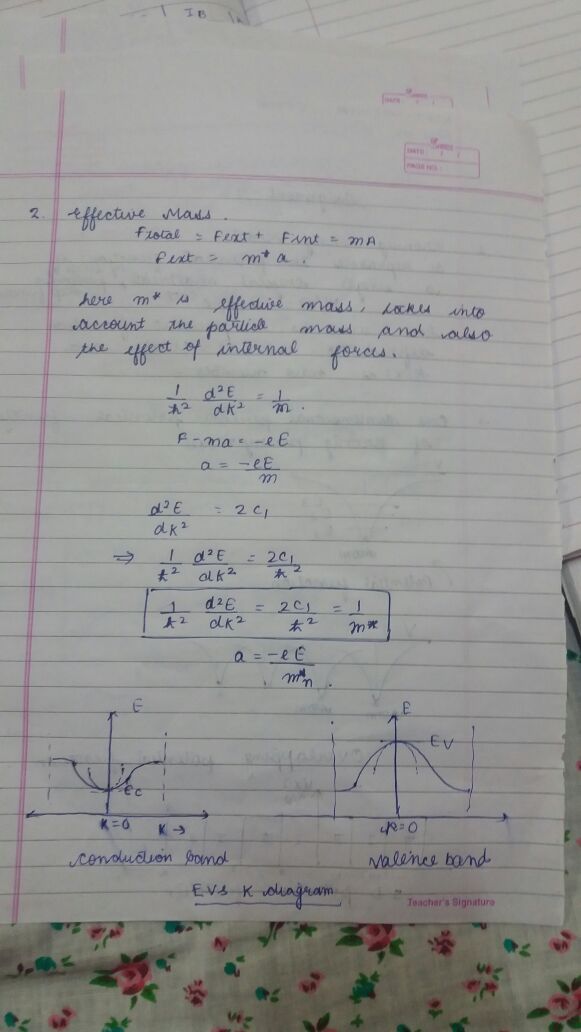 IB
DATE: / /
DATE: / /
PAGE NO.:
2. Effective Mass.
Ftotal = Fext + Fint = mA
Fext = m* a.
here m* is effective mass, takes into
account the particle mass and also
the effect of internal forces.
1/ħ² d²E/dK² = 1/m.
F - ma = -eE
a = -eE/m
d²E/dK² = 2C₁
⇒ 1/ħ² d²E/dK² = 2C₁/ħ²
1/ħ² d²E/dK² = 2C₁/ħ² = 1/m*
a = -eE/m*n.
E
Ec
K=0 K→
conduction band
E
EV
K=0
valence band
E Vs K diagram
Teacher's Signature